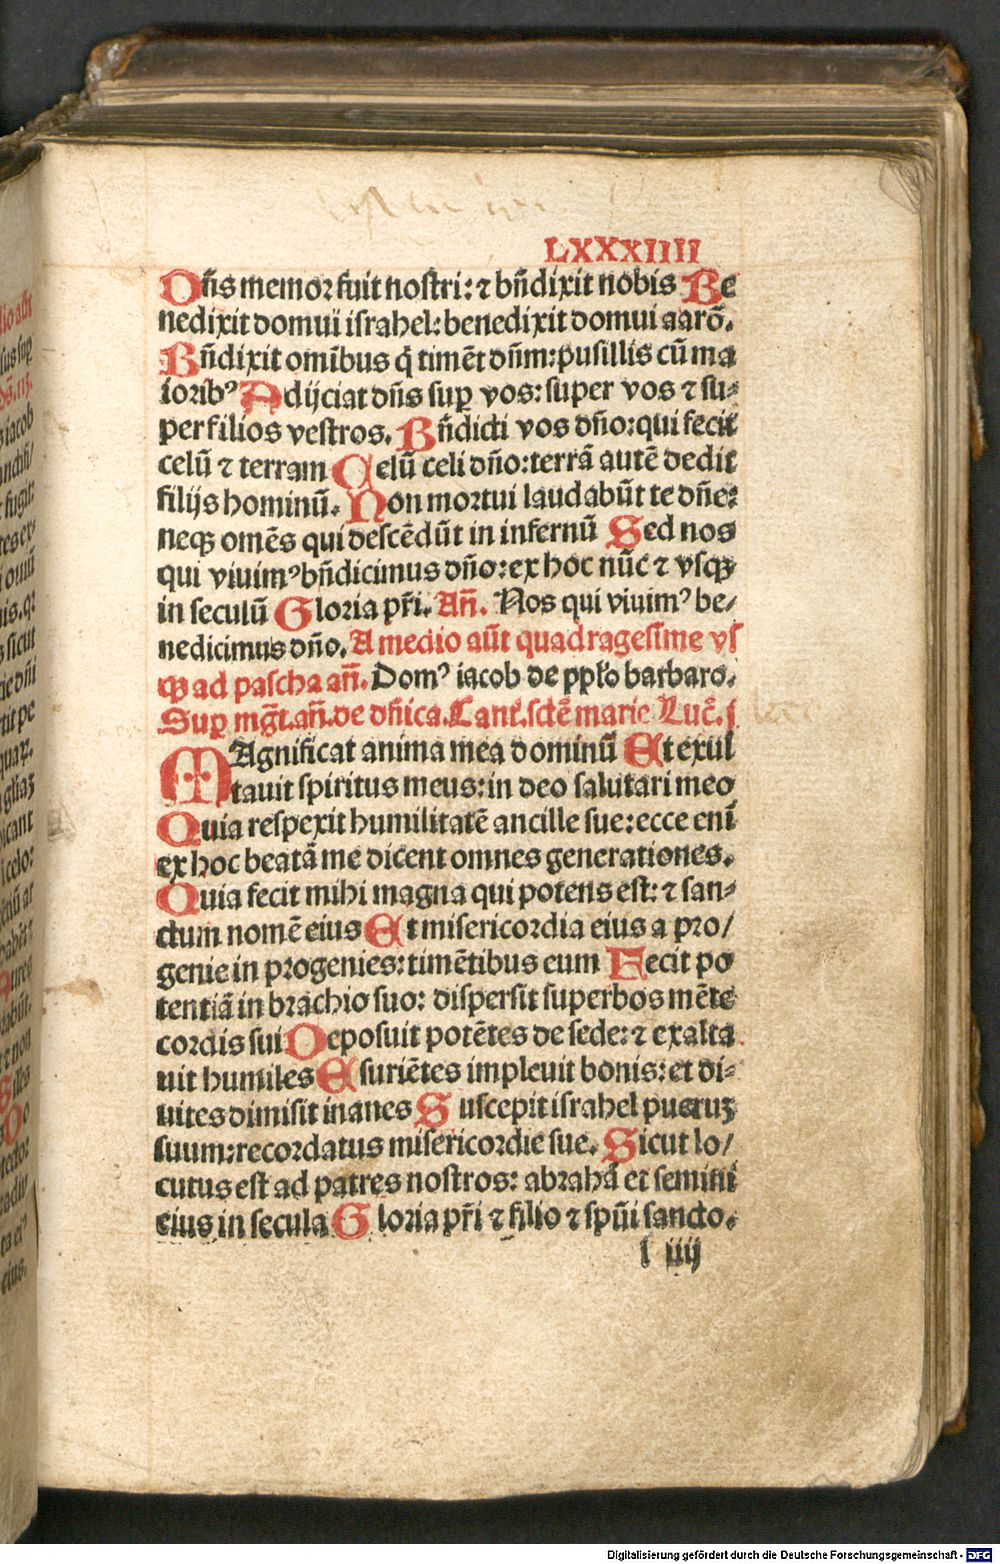 LXXXIIII
Dn̄s memor fuit nostri: ⁊ bn̄dixit nobis Be
nedixit domui israhel: benedixit domui aarō.
Bn̄dixit omībus q̇ timēt dn̄m: pusillis cū ma
ioribꝰ Adijciat dn̄s suꝑ vos: super vos ⁊ su-
per filios vestros. Bn̄dicti vos dn̄o: qui fecit
celū ⁊ terram Celū celi dn̄o: terrā autē dedit
filijs hominū. Non mortui laudabūt te dn̄e:
neqꝫ omēs qui descēdūt in infernū Sed nos
qui viuimꝰ bn̄dicimus dn̄o: ex hoc nūc ⁊ vsqꝫ
in seculū Gloria pr̄i. An̄. Nos qui viuimꝰ be/
nedicimus dn̄o. A medio aūt quadragesime vs
qꝫ ad pascha an̄. Domꝰ iacob de ppl̄o barbaro.
Suꝑ mḡt. an̄. de dn̄ica. Cant. sctē marie Luc̄. j
MAgnificat anima mea dominū Et exul
tauit spiritus meus: in deo salutari meo
Quia respexit humilitatē ancille sue: ecce enī
ex hoc beatā me dicent omnes generationes.
Quia fecit mihi magna qui potens est: ⁊ san-
ctum nomē eius Et misericordia eius a pro/
genie in progenies: timētibus eum Fecit po
tentiā in brachio suo: dispersit superbos mēte
cordis sui Deposuit potētes de sede: ⁊ exalta
uit humiles Esuriētes impleuit bonis: et di-
uites dimisit inanes Suscepit israhel pueruꝫ
suum: recordatus misericordie sue. Sicut lo/
cutus est ad patres nostros: abrahā et semini
eius in secula Gloria pr̄i ⁊ filio ⁊ spūi sancto.
l iiij
Digitalisierung gefördert durch die Deutsche Forschungsgemeinschaft - DFG